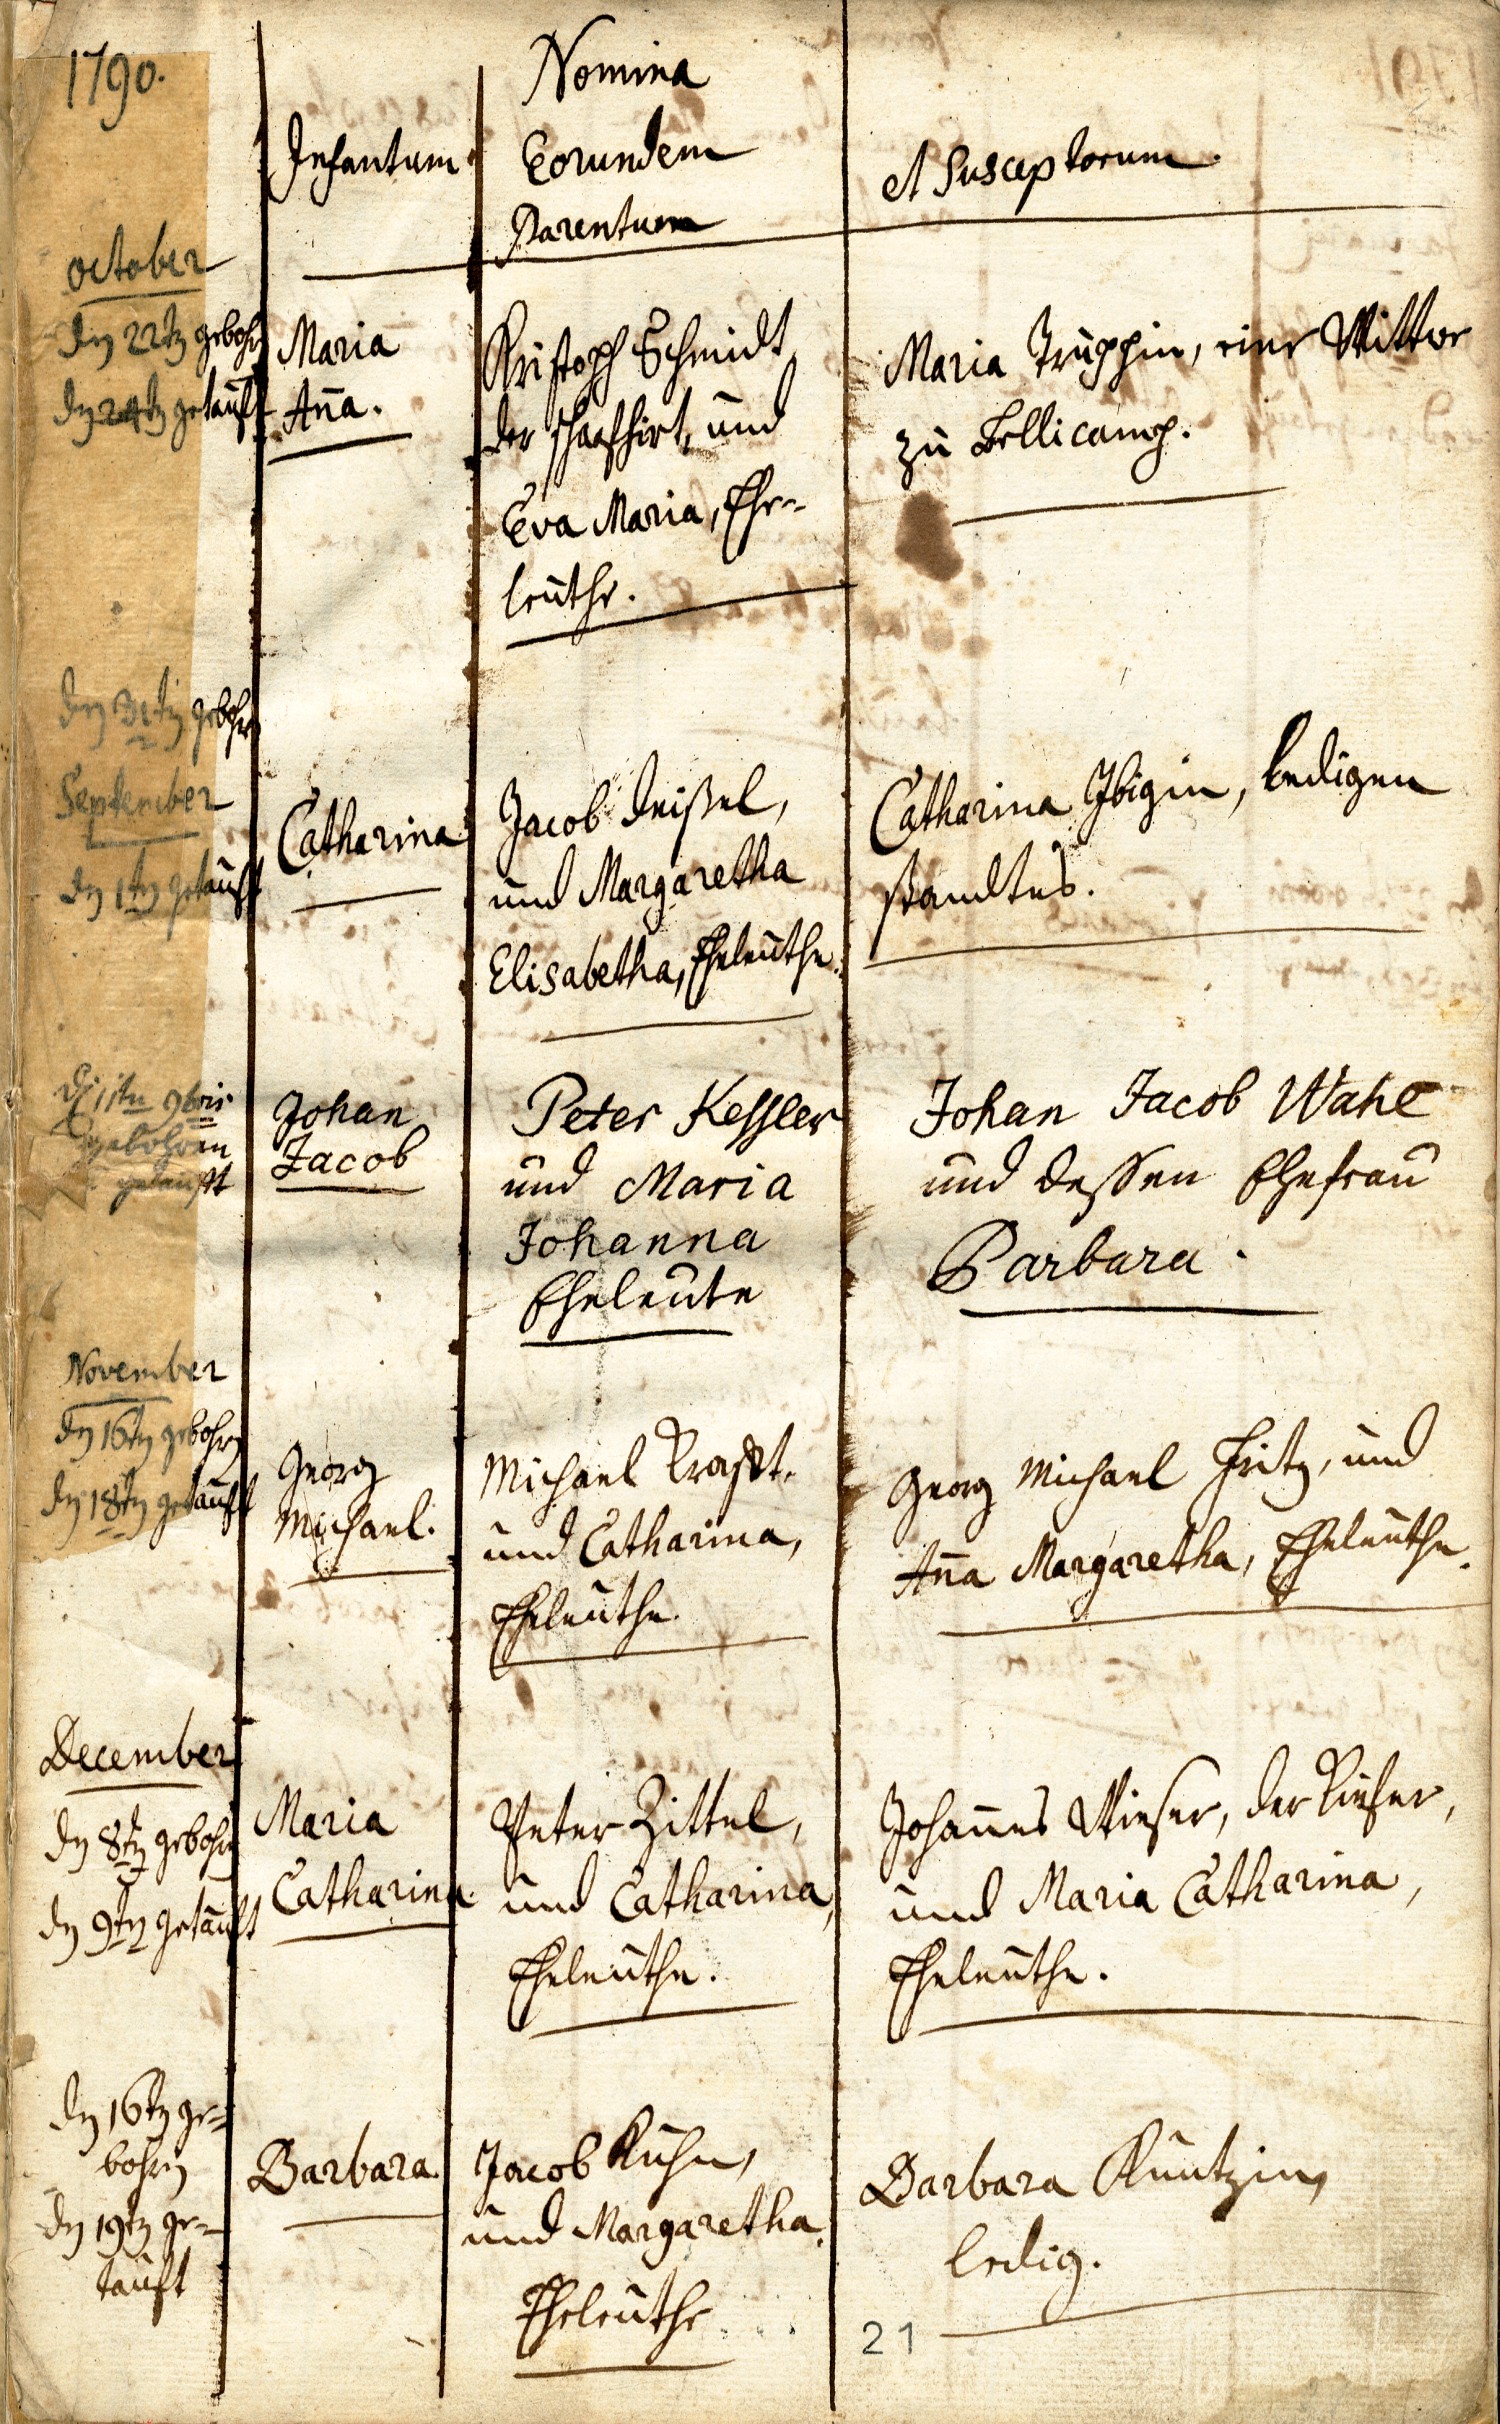 1790.
Nomina
Infantum
Eorundem
Parentum
et Susceptorum.
October
den 22ten gebohrn
den 24ten getaufft
Maria
Aña.
Kristoph Schmidt
der schaafhirt, und
Eva Maria, Ehe-
leuthe.
Maria Truppin, eine Wittwe
zu Bellicamp.
den 31ten gebohrn
September
den 1ten getaufft
Catharina
Jacob Deißel,
und Margaretha
Elisabetha, Eheleuthe.
Catharina Ibigin, Ledigen
standtes.
11ten 9bris
gebohren
getaufft
Johan
Jacob
Peter Kessler
und Maria
Johanna
Eheleute
Johan Jacob Wahl
und dessen Ehefrau
Barbara.
November
den 16ten gebohrn
den 18ten getaufft
Georg
Michael.
Michael Krafft.
und Catharina,
Eheleuthe.
Georg Michael Fritz, und
Aña Margaretha, Eheleuthe.
December
den 8ten gebohrn
den 9ten getaufft
Maria
Catharina.
Peter Zittel,
und Catharina,
Eheleuthe.
Johañes Wieser, der Kiefer,
und Maria Catharina,
Eheleuthe.
den 16ten ge-
bohrn
den 19ten ge-
tauft
Barbara.
Jacob Kuhn,
und Margaretha.
Eheleuthe
Barbara Kuntzin,
ledig.
21